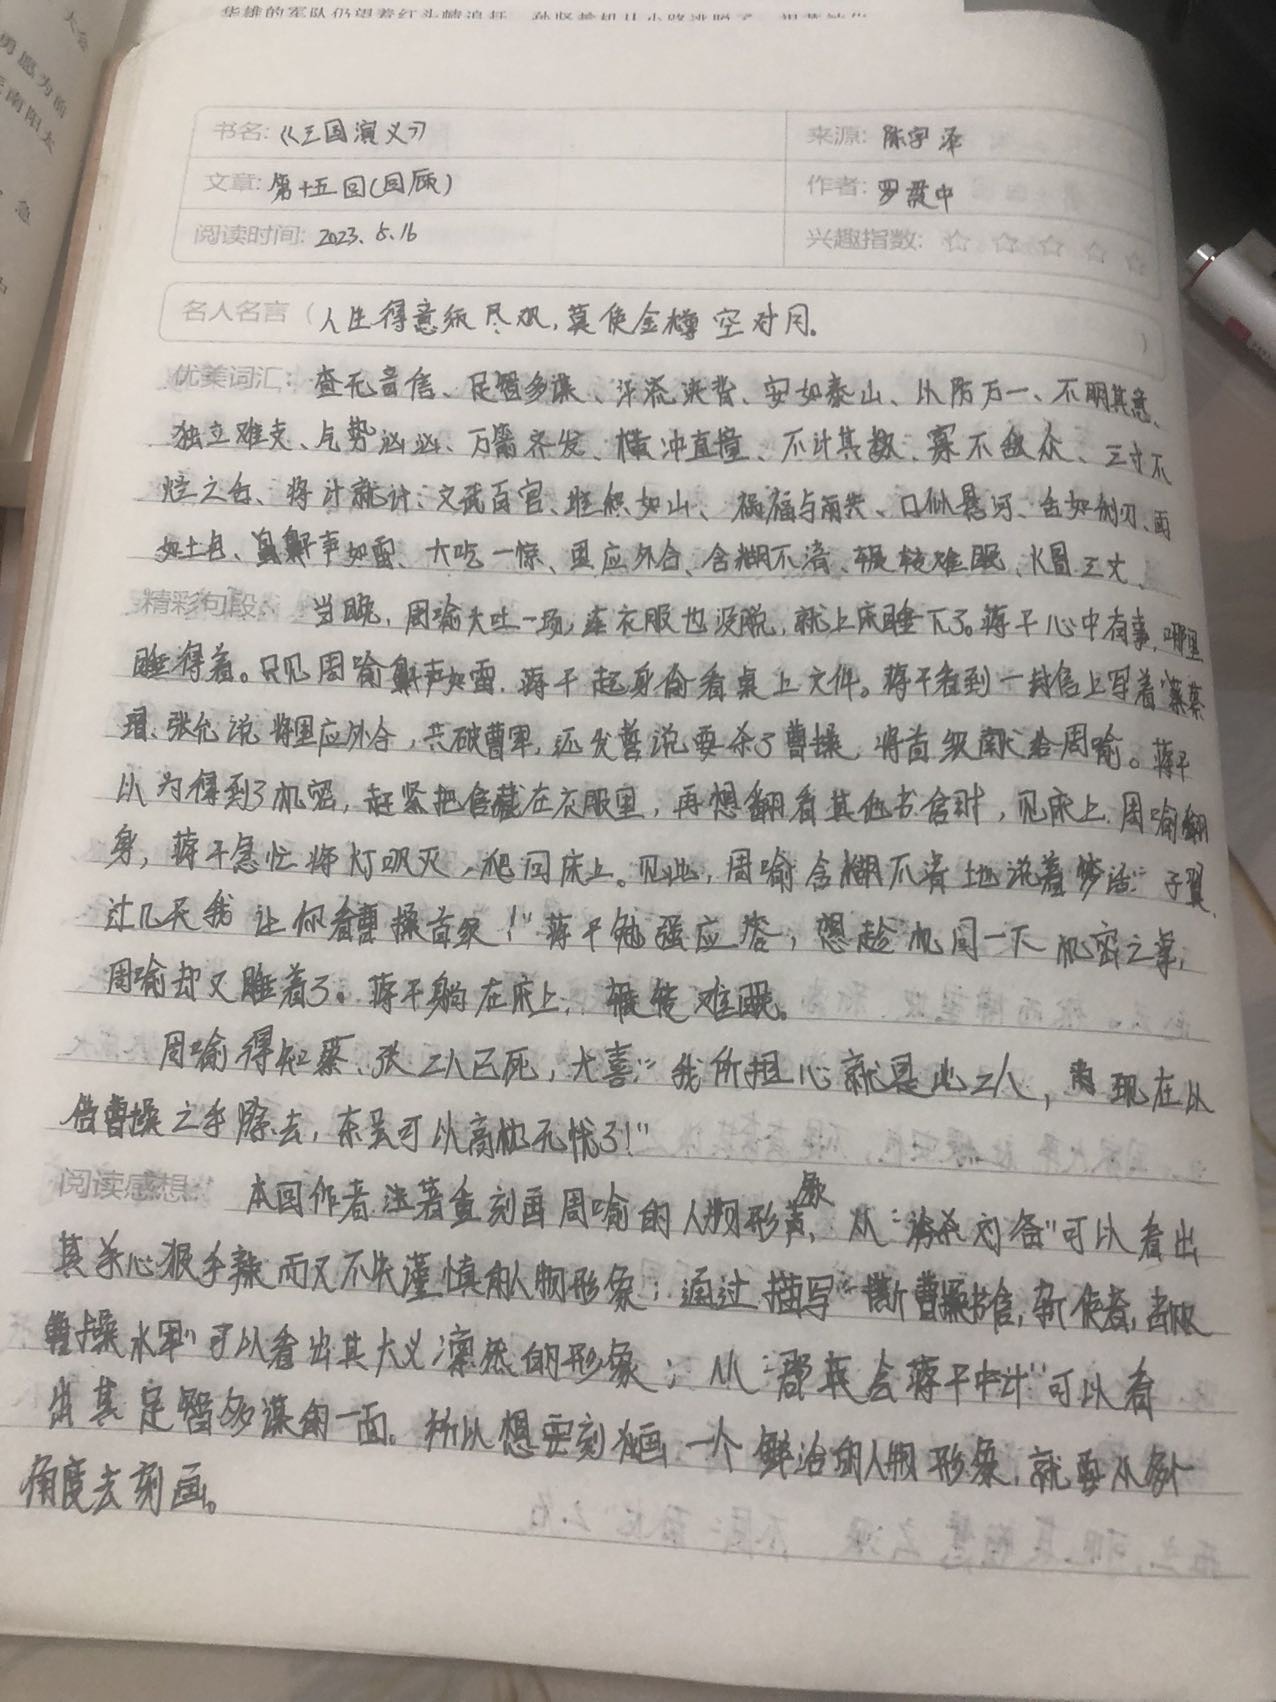 华雄的军队仍望着红头帻追赶
大会
勇愿为前
南阳太
急
书名:《三国演义》
来源: 陈宇泽
文章: 第十五回(回顾)
作者: 罗贯中
阅读时间: 2023.5.16
兴趣指数: ☆ ☆ ☆ ☆ ☆
名人名言(人生得意须尽欢,莫使金樽空对月。)
优美词汇: 杳无音信、足智多谋、汗流浃背、安如泰山、以防万一、不明其意、
独立难支、气势汹汹、万箭齐发、横冲直撞、不计其数、寡不敌众、三寸不
烂之舌、将计就计、文武百官、堆积如山、祸福与共、口似悬河、舌如利刃、面
如土色、鼾声如雷、大吃一惊、里应外合、含糊不清、辗转难眠、火冒三丈、
精彩句段: 当晚,周瑜大吐一场,连衣服也没脱,就上床睡下了。蒋干心中有事,哪里
睡得着。只见周喻鼾声如雷,蒋干起身偷看桌上文件。蒋干看到一封信上写着“蔡
瑁、张允说将里应外合,共破曹军,还发誓说要杀了曹操,将首级献给周喻。蒋干
以为得到了机密,赶紧把信藏在衣服里,再想翻看其他书信时,见床上周喻翻
身,蒋干急忙将灯吸灭,爬回床上。见此,周喻含糊不清地说着梦话:“子翼,
过几天我让你看曹操首级!”蒋干勉强应答,想趁机问一下机密之事,
周喻却又睡着了。蒋干躺在床上,辗转难眠。
周喻得知蔡、张二人已死,大喜:“我所担心就是此二人,现在以
借曹操之手除去,东吴可以高枕无忧了!”
阅读感想: 本回作者注着重刻画周喻的人物形象,从“谤杀刘备”可以看出
其杀心狠手辣而又不失谨慎的人物形象;通过描写“撕曹操书信,斩使者,击败
曹操水军”可以看出其大义凛然的形象;从“群英会蒋干中计”可以看
出其足智多谋的一面。所以想要刻画一个鲜活的人物形象,就要从多个
角度去刻画。